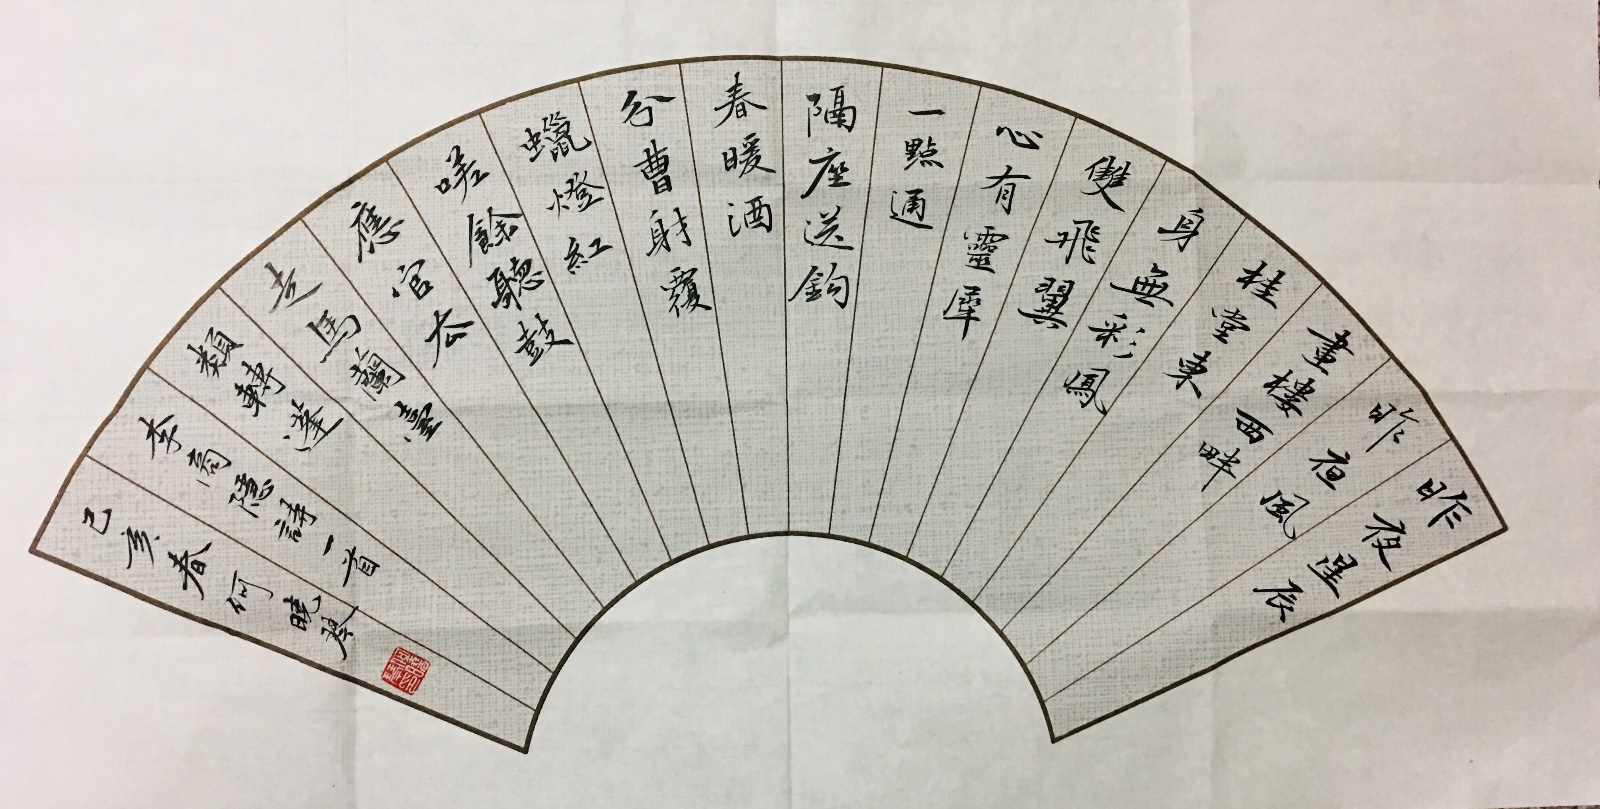 昨夜星辰
昨夜風
畫樓西畔
桂堂東
身無彩鳳
雙飛翼
心有靈犀
一點通
隔座送鈎
春暖酒
分曹射覆
蠟燈紅
嗟餘聽鼓
應官去
走馬蘭臺
類轉蓬
李商隱詩一首
己亥春何曉琴